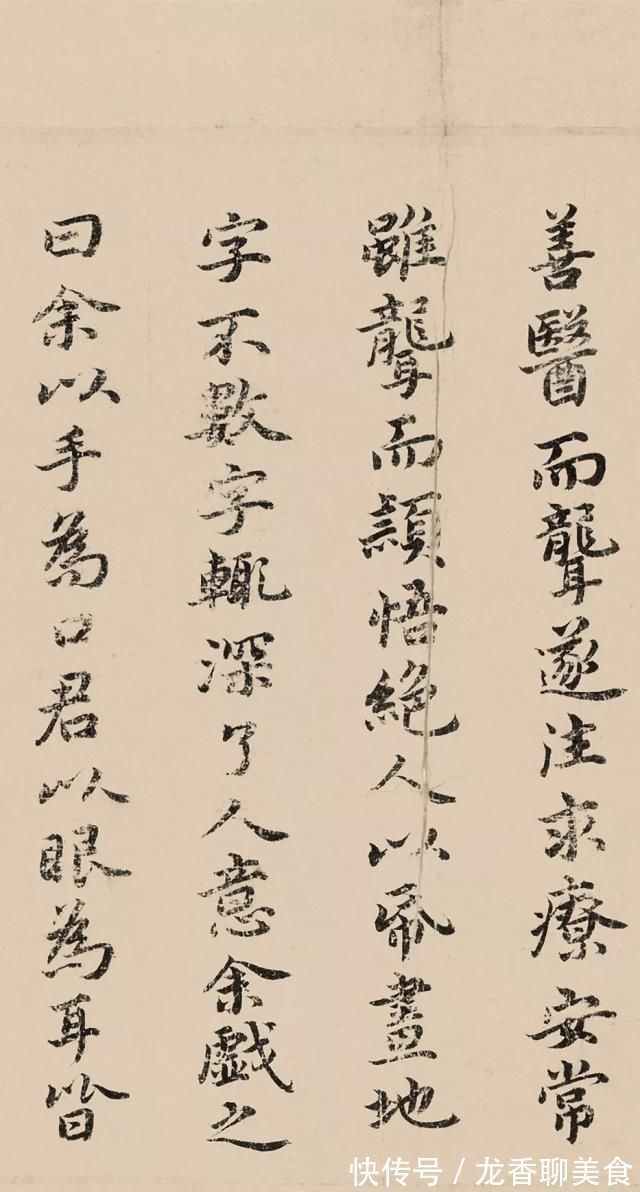 善醫而聾遂往求療安常
雖聾而頴悟絕人以帋畫地
字不數字輙深了人意余戲之
曰余以手為口君以眼為耳皆
快传号 / 龙香聊美食